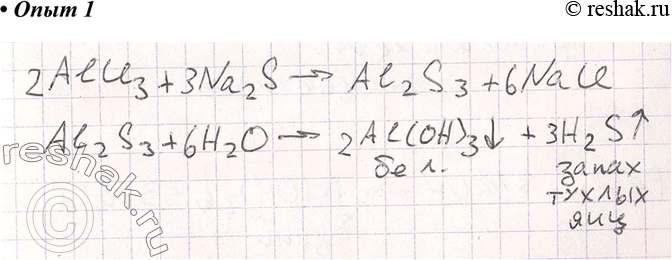 • Опыт 1
© reshak.ru
2AlCl₃ + 3Na₂S → Al₂S₃ + 6NaCl
Al₂S₃ + 6H₂O → 2Al(OH)₃↓ + 3H₂S↑
бел. запах
тухлых
яиц
reshak.ru
©